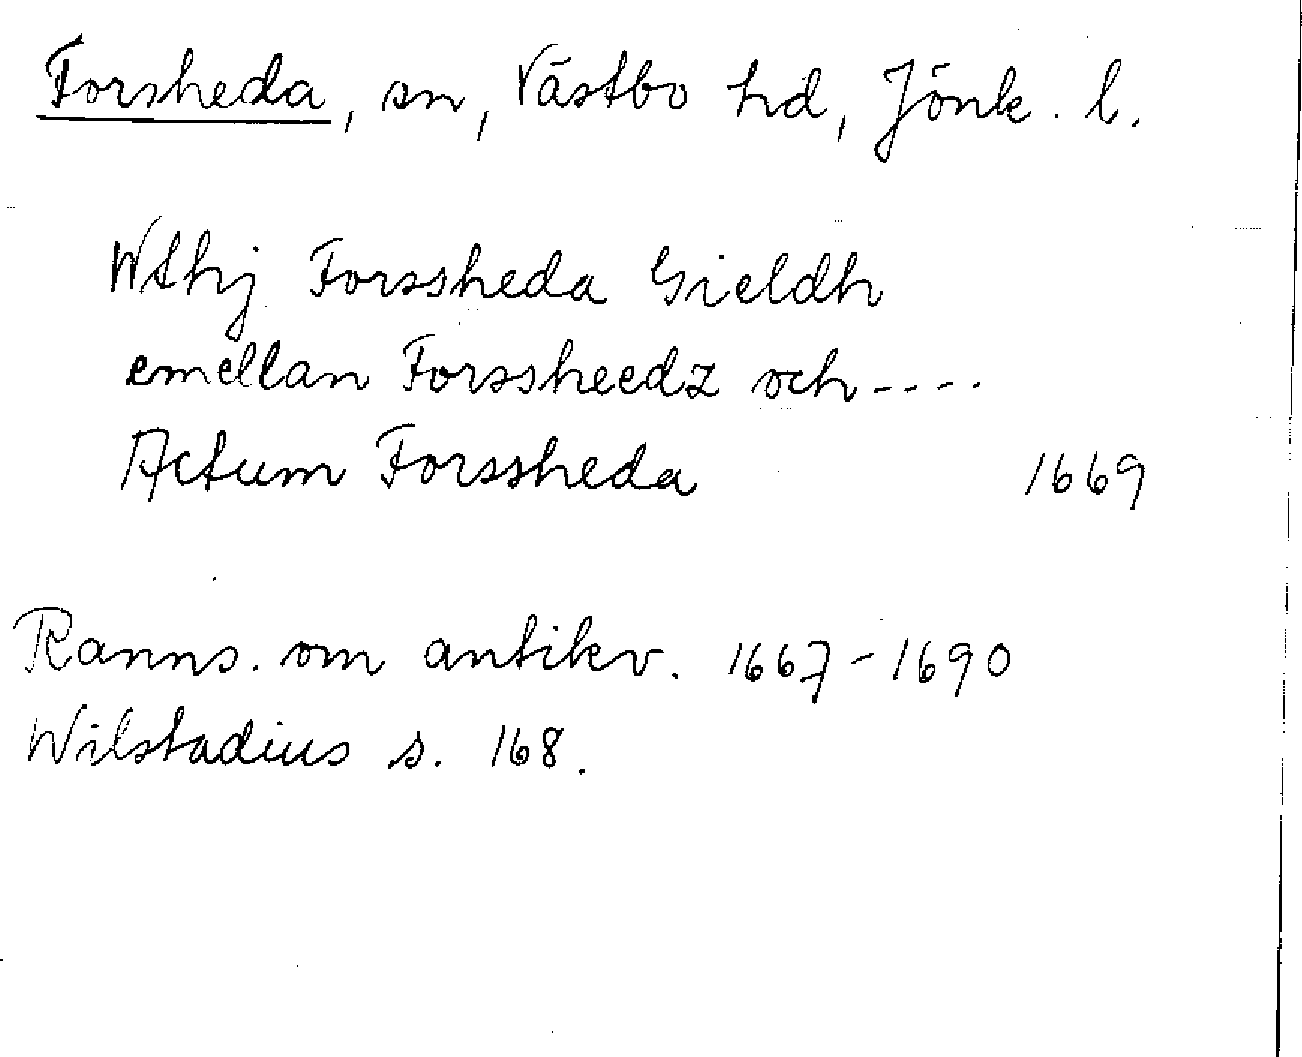 Forsheda, sn, Västbo hd, Jönk. l.
Wthj Forssheda Gieldh
emellan Forssheedz och ----
Actum Forssheda 1669
Ranns. om antikv. 1667-1690
Wilstadius s. 168.